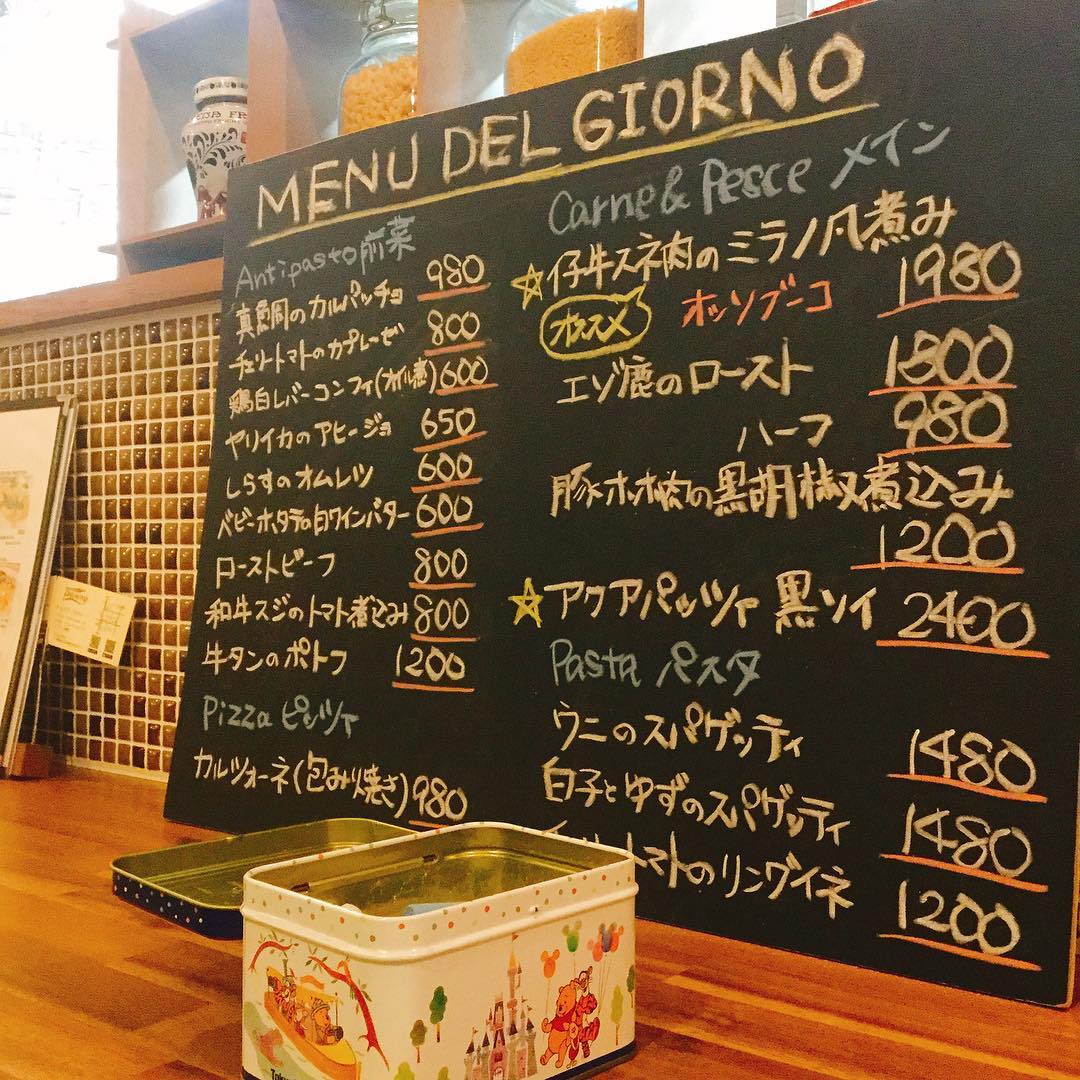 MENU DEL GIORNO
Antipasto 前菜
真鯛のカルパッチョ 980
チェリートマトのカプレーゼ 800
鶏白レバーコンフィ(オイル煮) 600
ヤリイカのアヒージョ 650
しらすのオムレツ 600
ベビーホタテの白ワインバター 600
ローストビーフ 800
和牛スジのトマト煮込み 800
牛タンのポトフ 1200
Pizza ピッツァ
カルツォーネ(包み焼き) 980
Carne & Pesce メイン
☆仔牛スネ肉のミラノ風煮み
オススメ オッソブーコ 1980
エゾ鹿のロースト 1800
ハーフ 980
豚ホホ肉の黒胡椒煮込み
1200
☆アクアパッツァ 黒ソイ 2400
Pasta パスタ
ウニのスパゲッティ 1480
白子とゆずのスパゲッティ 1480
トマトのリングイネ 1200